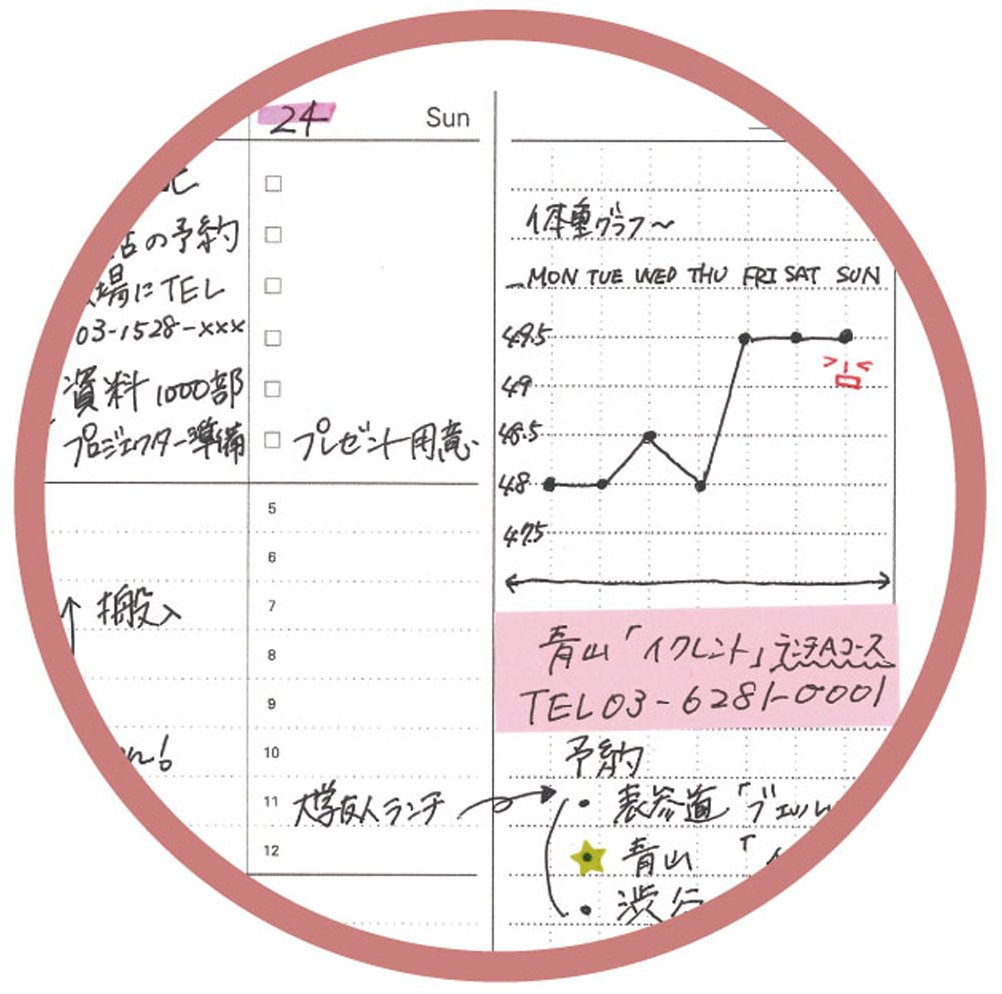 24 Sun
の予約
場にTEL
03-1528-xxx
資料1000部
プロジェクター準備
プレゼント用意
5
6
7
搬入
8
9
10
11 大学友人ランチ
12
体重グラフ～
MON TUE WED THU FRI SAT SUN
49.5
49
48.5
48
47.5
青山「イクレント」ランチAコース
TEL 03-6281-0001
予約
・表参道「ブェル
・青山「イ
・渋谷